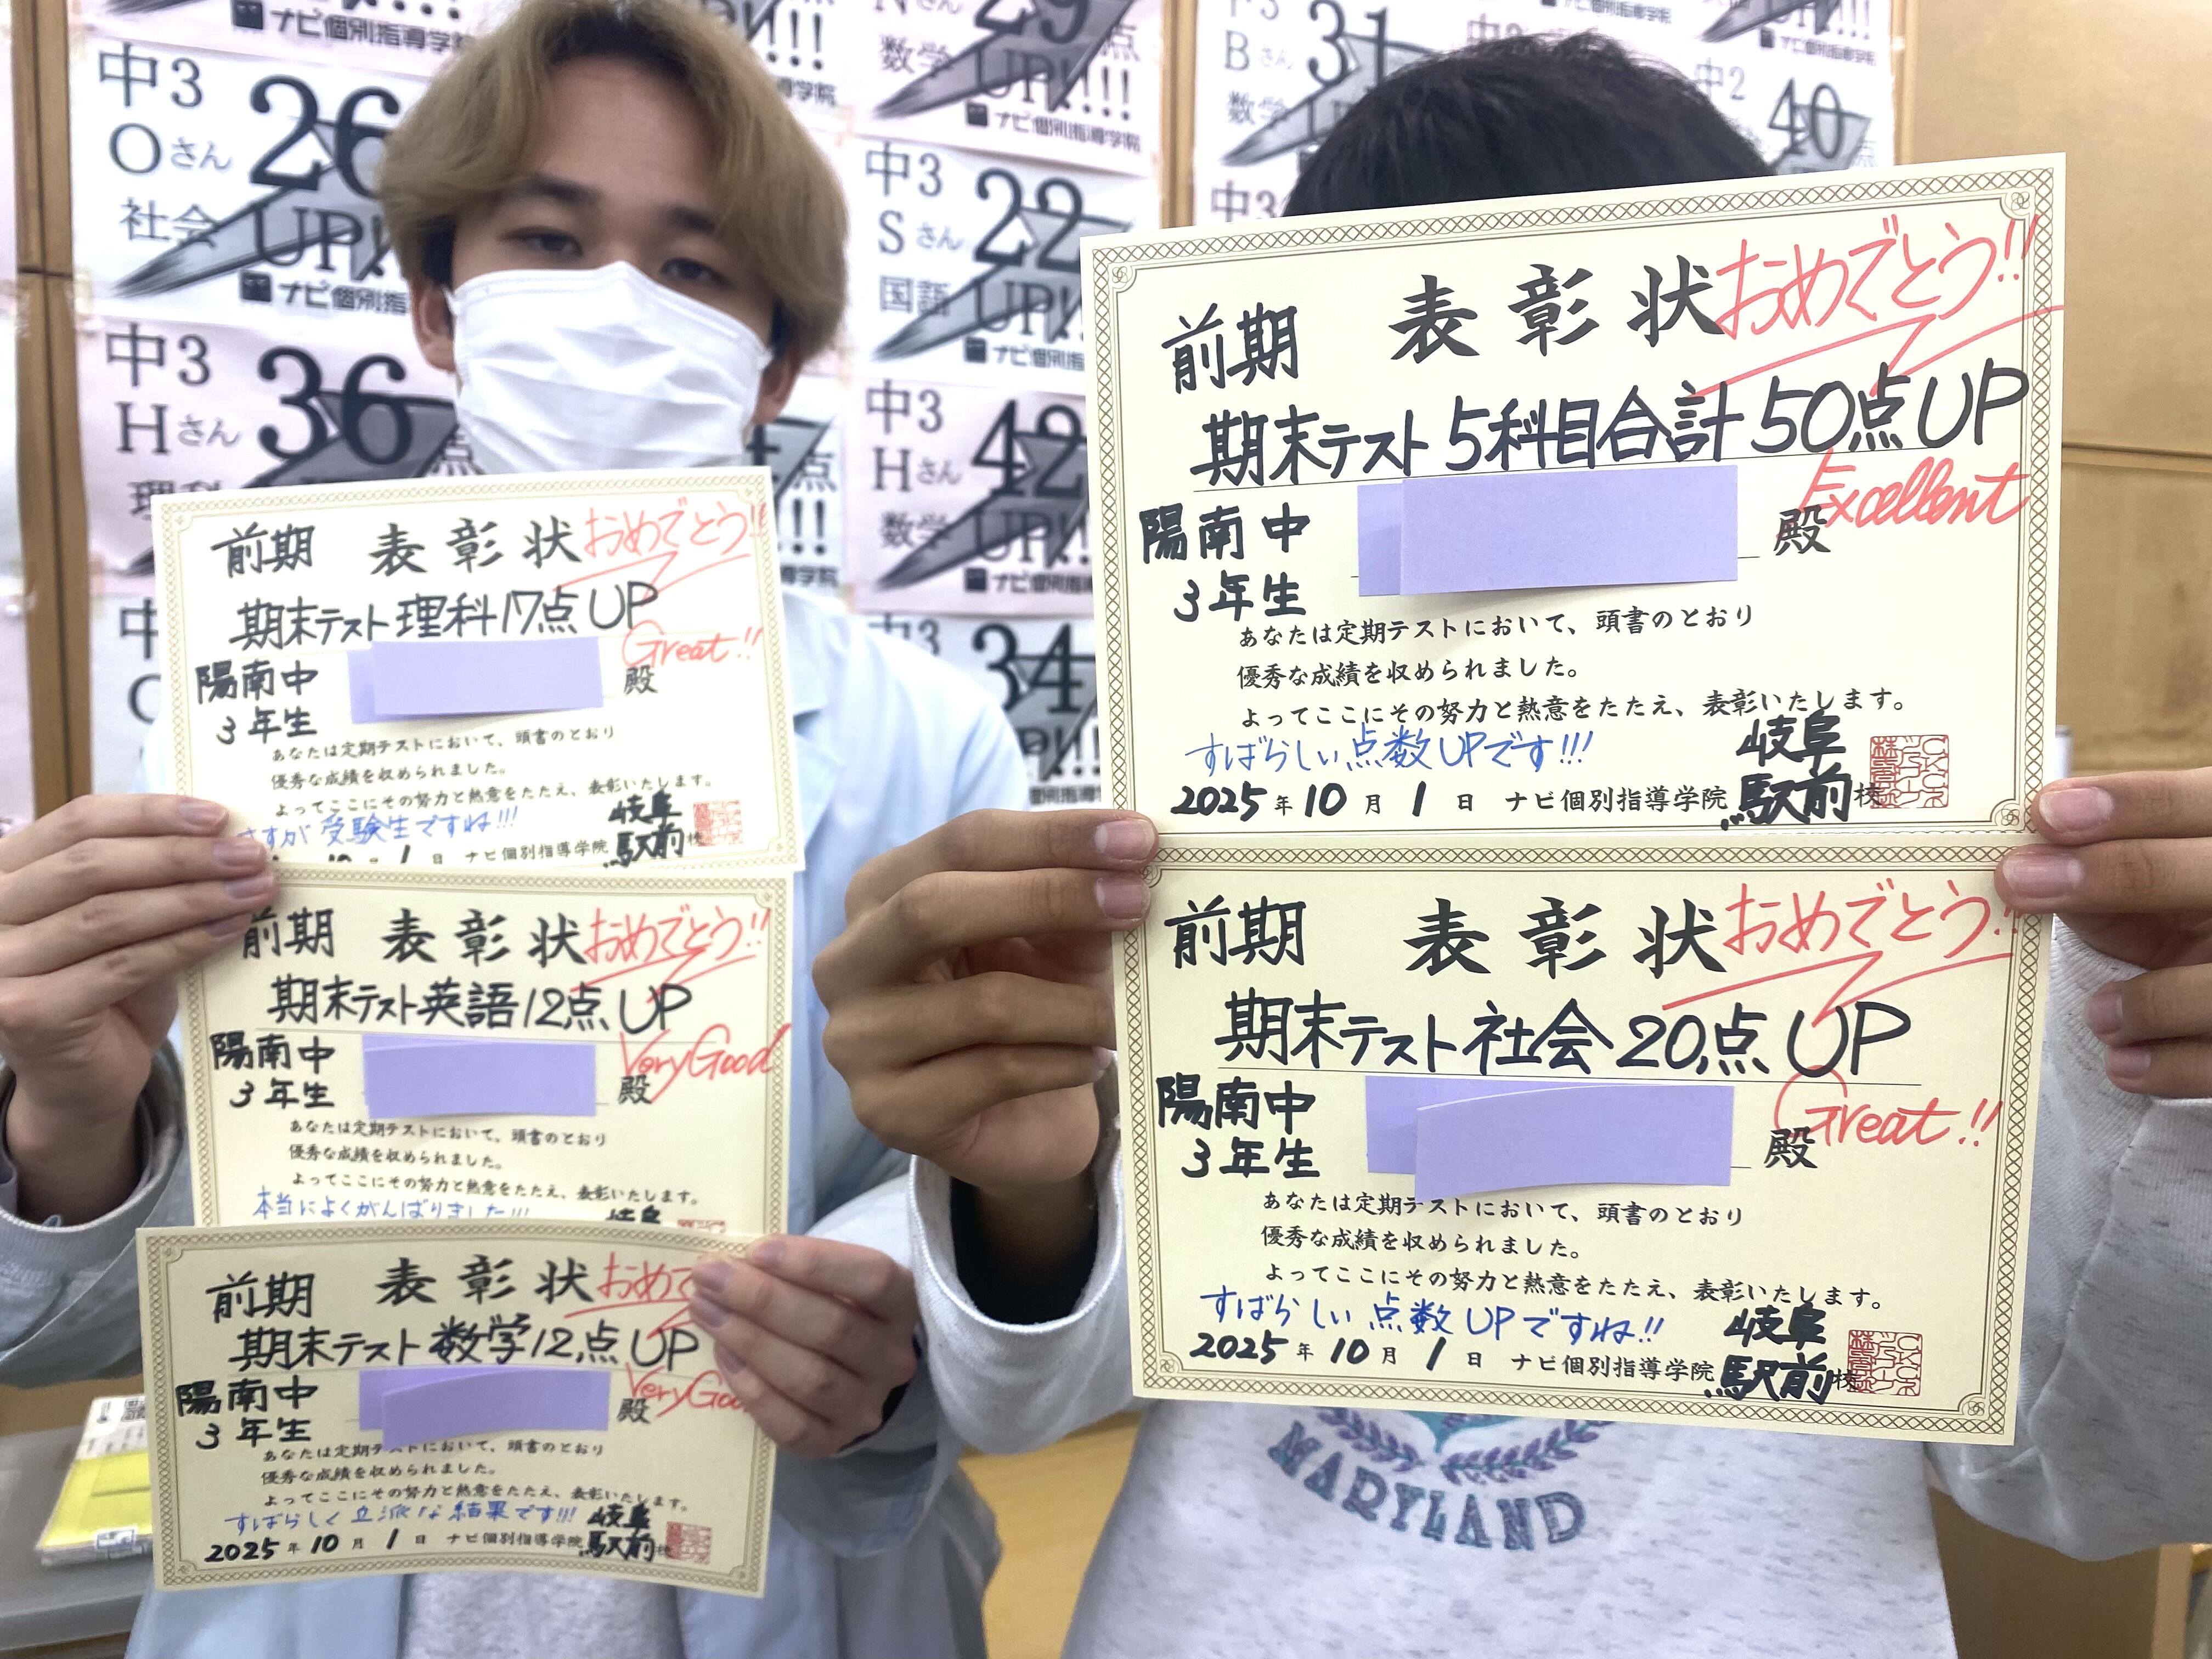 中3
Oさん
26
社会
UP!!
ナビ個別指
中3
Hさん
36
点
ナビ個別指導学院
29点
数学
UP!!!!
ナビ個別指導学院
中3
Sさん
22
国語
UP!!
ナビ個別指
中3
Hさん
42
数学
UP!!
ナビ個別指
34
Bさん
31
数学
中2
40
中3
前期 表彰状 おめでとう!!
期末テスト 理科17点UP
Great!!
陽南中
3年生
殿
あなたは定期テストにおいて、頭書のとおり
優秀な成績を収められました。
よってここにその努力と熱意をたたえ、表彰いたします。
さすが受験生ですね!!!
岐阜
駅前校
月 1日 ナビ個別指導学院
前期 表彰状 おめでとう!!
期末テスト英語12点UP
Very Good
陽南中
3年生
殿
あなたは定期テストにおいて、頭書のとおり
優秀な成績を収められました。
よってここにその努力と熱意をたたえ、表彰いたします。
本当によくがんばりました!!!
岐阜
前期 表彰状 おめで
期末テスト 数学12点UP
Very Goo
陽南中
3年生
殿
あなたは定期テストにおいて、頭書のとおり
優秀な成績を収められました。
よってここにその努力と熱意をたたえ、表彰いたします。
すばらしく立派な結果です!!!
岐阜
2025年10月1日 ナビ個別指導学院 駅前校
前期 表彰状 おめでとう!!
期末テスト 5科目合計50点UP
Excellent
陽南中
3年生
殿
あなたは定期テストにおいて、頭書のとおり
優秀な成績を収められました。
よってここにその努力と熱意をたたえ、表彰いたします。
すばらしい点数UPです!!!
岐阜
2025年10月1日 ナビ個別指導学院 駅前校
前期 表彰状 おめでとう!!
期末テスト 社会20点UP
Great!!
陽南中
3年生
殿
あなたは定期テストにおいて、頭書のとおり
優秀な成績を収められました。
よってここにその努力と熱意をたたえ、表彰いたします。
すばらしい点数UPですね!!
岐阜
2025年10月1日 ナビ個別指導学院 駅前校
MARYLAND